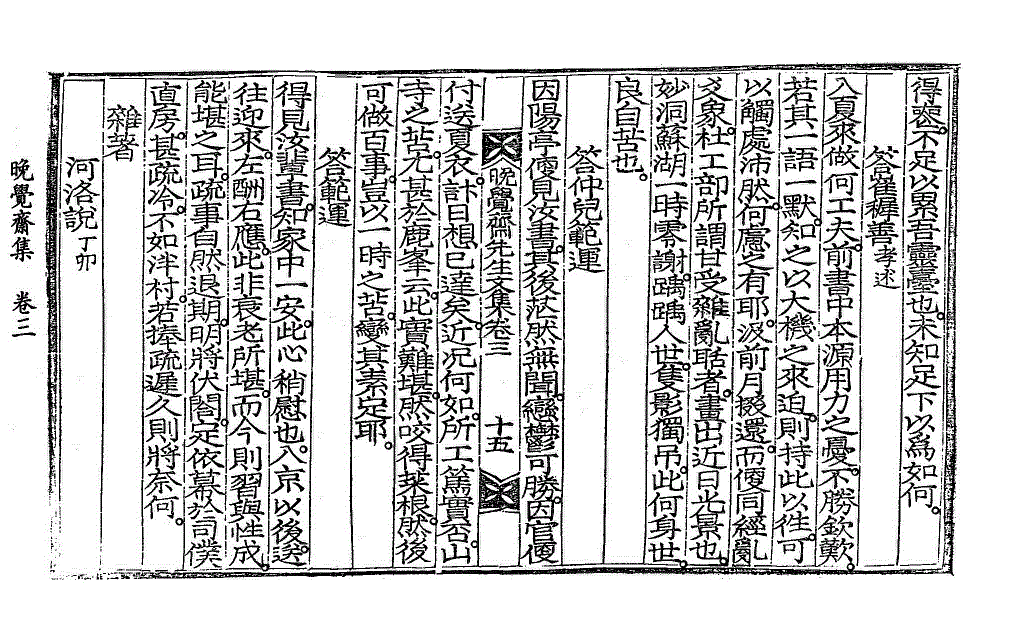 得喪。不足以累吾靈臺也。未知足下以爲如何。
答崔穉善孝述
入夏來做何工夫。前書中本源用力之憂。不勝欽歎。
若其一語一默。知之以大機之來迫。則持此以往。可
以觸處沛然。何慮之有耶。汲前月掇還。而傻同經亂
爻象。杜工部所謂甘受雜亂聒者。畫出近日光景也。
妙洞蘇湖一時零謝。踽踽人世。隻影獨吊。此何身世。
良自苦也。
答仲兒範運
因陽亭傻見汝書。其後茫然無聞。戀鬱可勝。因官傻
晚覺齋先生文集卷三 十五
付送夏衣。計日想已達矣。近况何如。所工篤實否。山
寺之苦。尤甚於鹿峯云。此實難堪。然咬得菜根。然後
可做百事。豈以一時之苦。變其素定耶。
答範運
得見汝輩書。知家中一安。此心稍慰也。入京以後。送
往迎來。左酬右應。此非衰老所堪。而今則習與性成。
能堪之耳。疏事自然退期。明將伏閤。定依幕於司僕
直房。甚疏冷。不如泮村。若捧疏遲久則將奈何。
雜著
河洛說丁卯
晚覺齋集 卷三